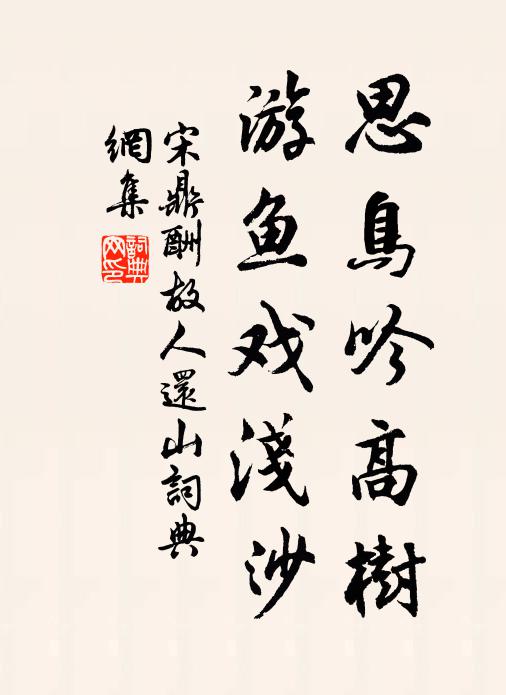 思鳥吟高樹
游鱼戏淺沙
宋鼎酬故人還山詞典
網集
詞典
网印